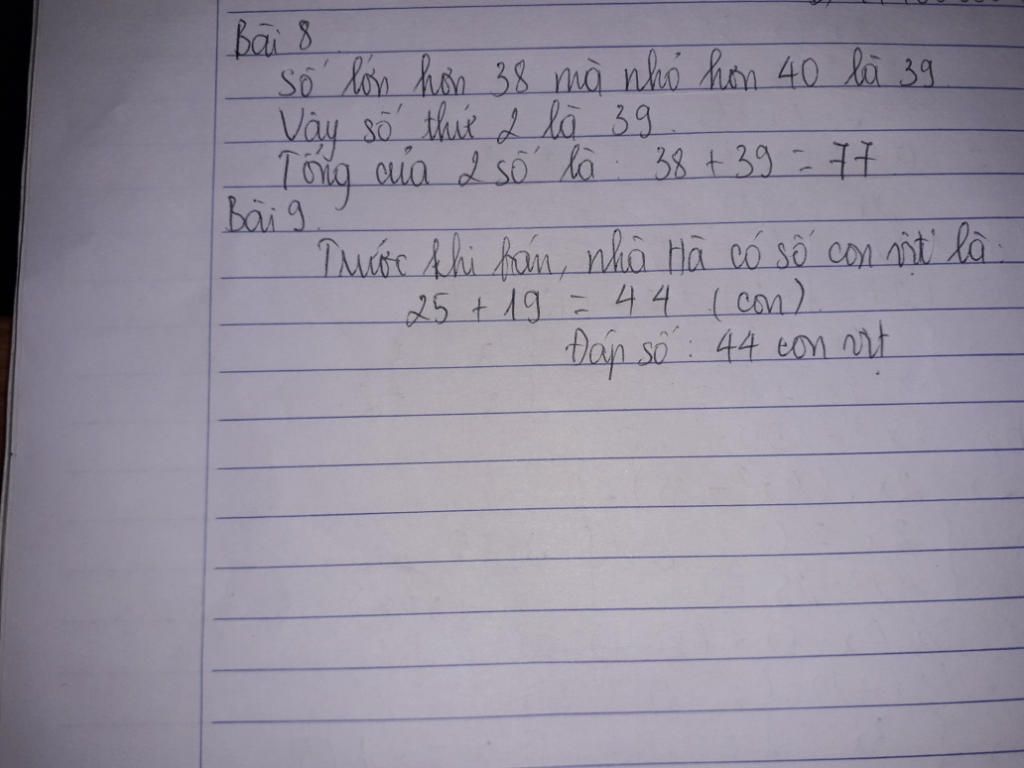 Bài 8
Số lớn hơn 38 mà nhỏ hơn 40 là 39
Vậy số thứ 2 là 39.
Tổng của 2 số là: 38 + 39 = 77
Bài 9
Trước khi bán, nhà Hà có số con vịt là:
25 + 19 = 44 (con)
Đáp số: 44 con vịt